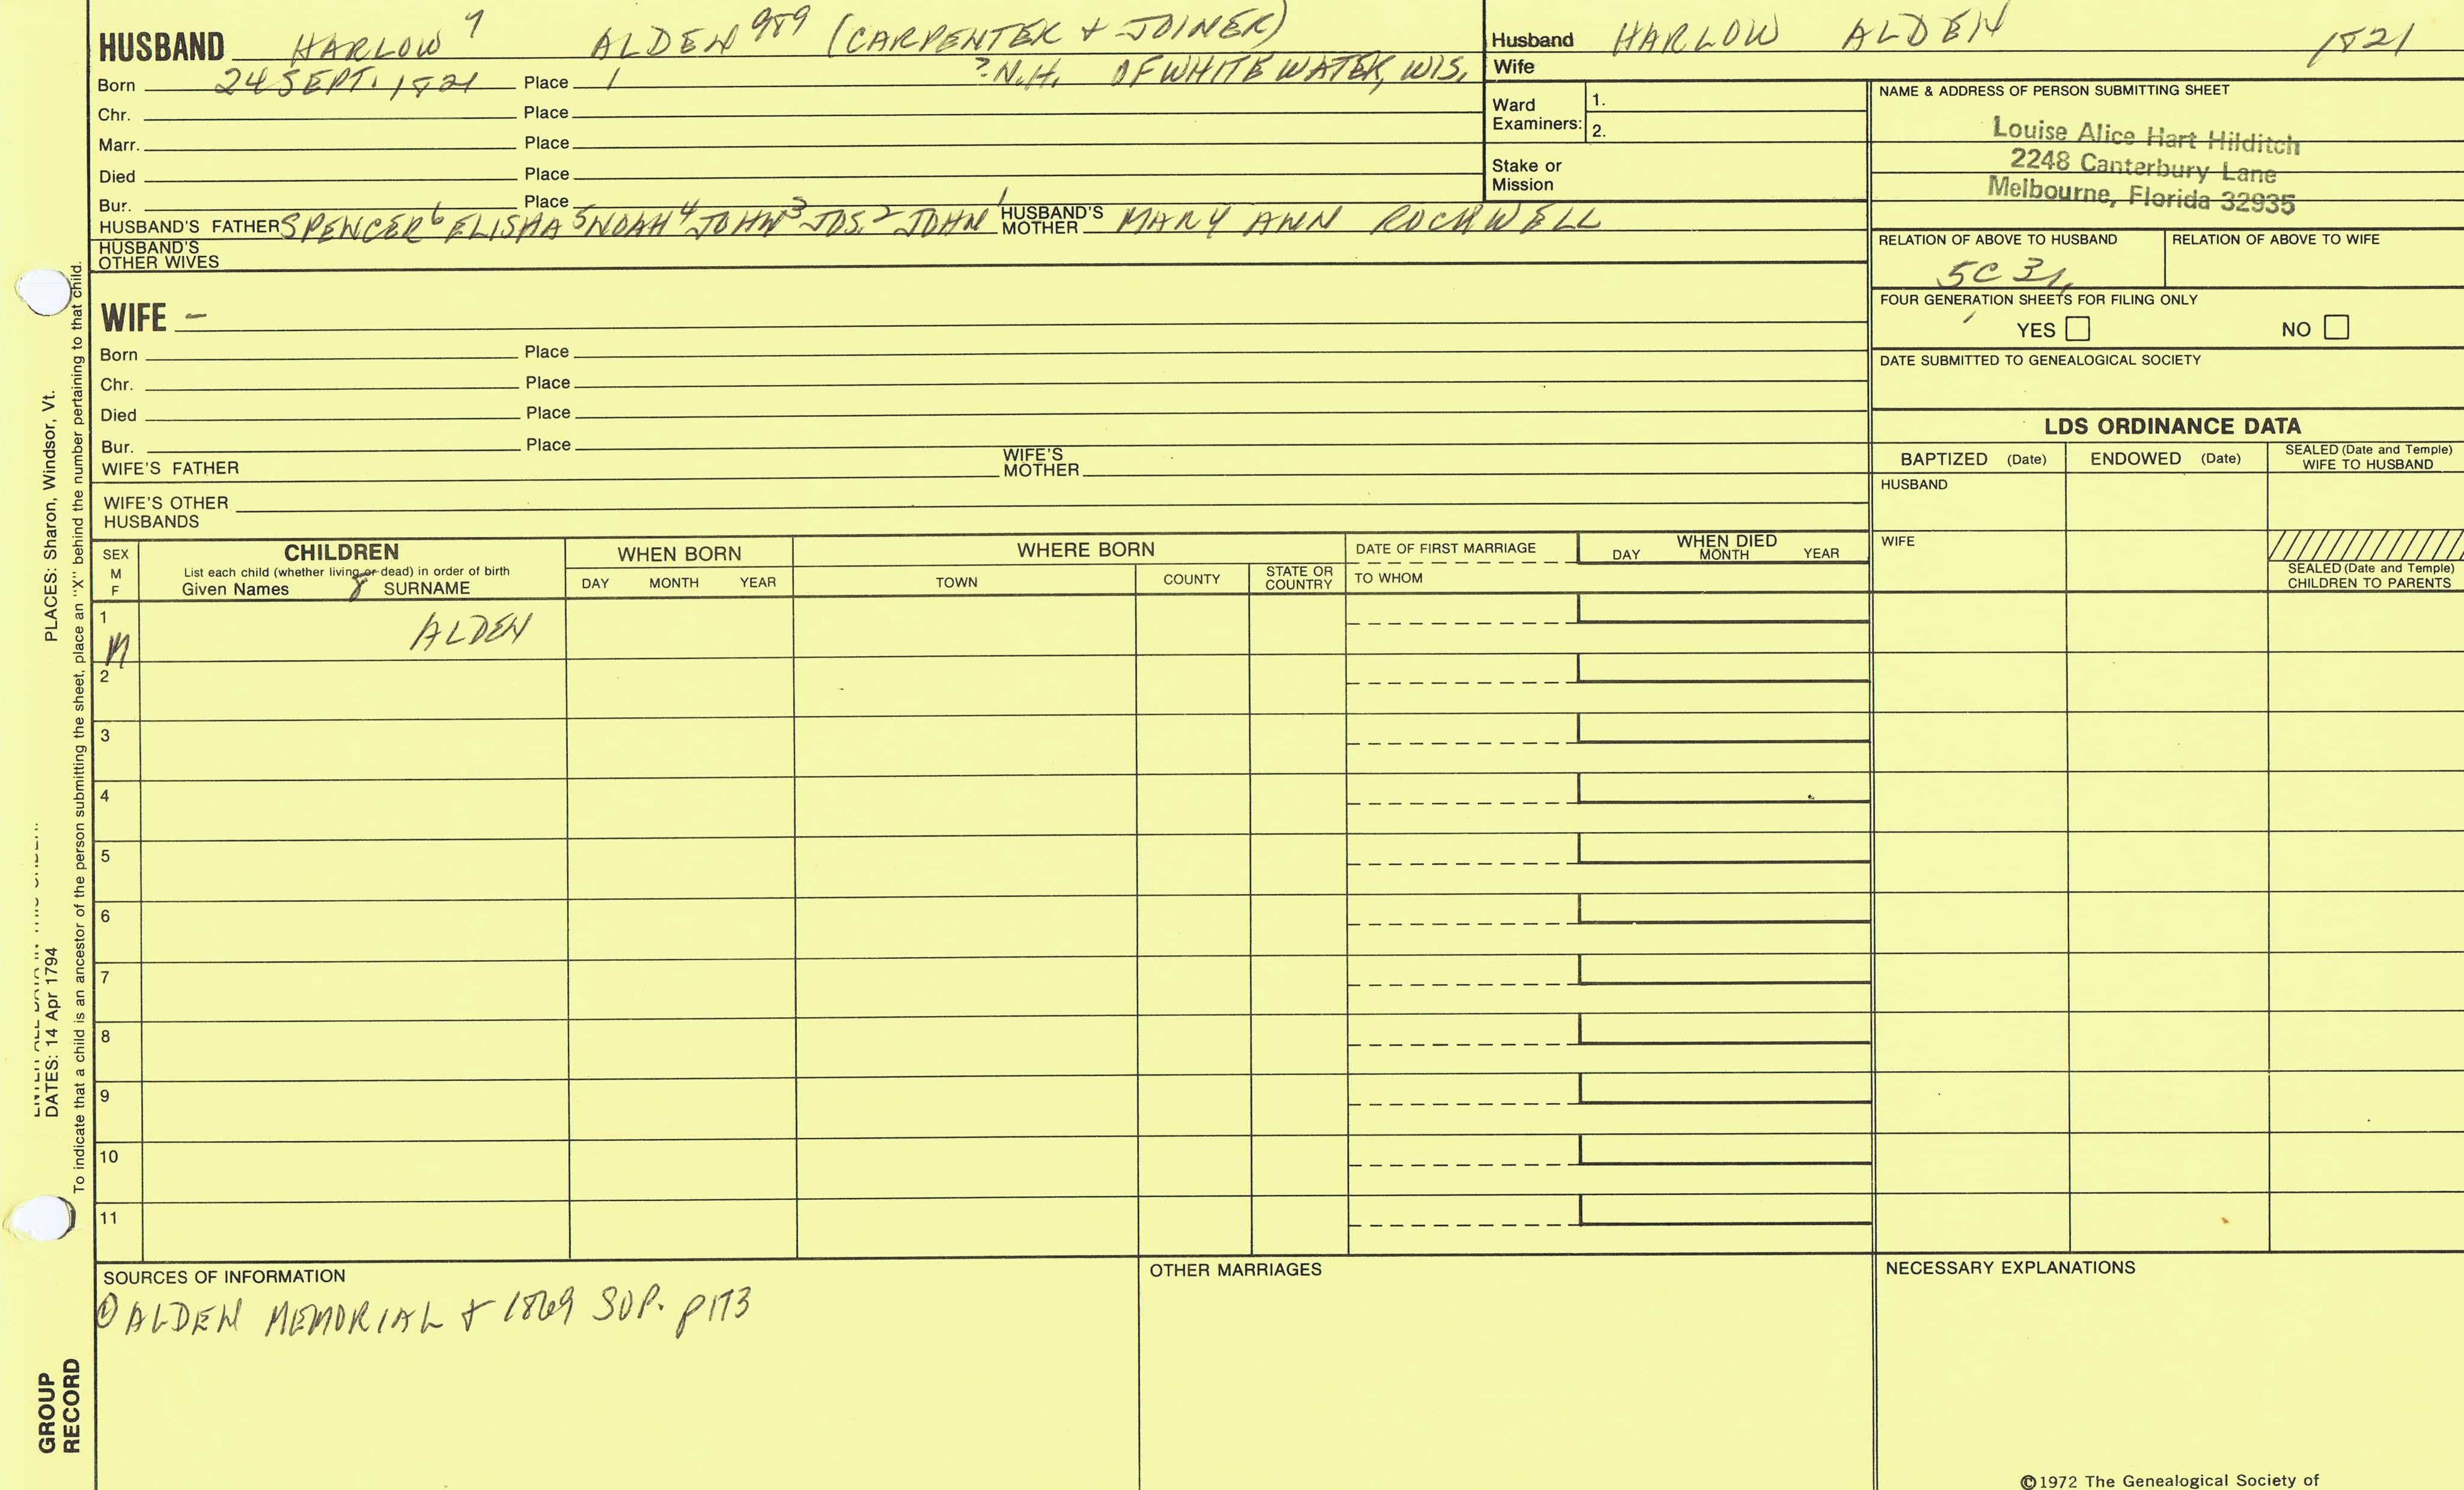 HUSBAND HARLOW 7 ALDEN 989 (CARPENTER + JOINER)
Born 24 SEPT. 1821 Place 1 ?N.H. OF WHITE WATER, WIS.
Chr. Place
Marr. Place
Died Place
Bur. Place
HUSBAND'S FATHER SPENCER 6 ELISHA 5 NOAH 4 JOHN 3 JOS. 2 JOHN 1 HUSBAND'S MOTHER MARY ANN ROCKWELL
HUSBAND'S OTHER WIVES
WIFE -
Born Place
Chr. Place
Died Place
Bur. Place
WIFE'S FATHER WIFE'S MOTHER
WIFE'S OTHER HUSBANDS
Husband HARLOW ALDEN 1821
Wife
Ward Examiners: 1.
2.
Stake or Mission
NAME & ADDRESS OF PERSON SUBMITTING SHEET
Louise Alice Hart Hilditch
2248 Canterbury Lane
Melbourne, Florida 32935
RELATION OF ABOVE TO HUSBAND RELATION OF ABOVE TO WIFE
5C 3r
FOUR GENERATION SHEETS FOR FILING ONLY
YES NO
DATE SUBMITTED TO GENEALOGICAL SOCIETY
LDS ORDINANCE DATA
BAPTIZED (Date) ENDOWED (Date) SEALED (Date and Temple) WIFE TO HUSBAND
HUSBAND
WIFE
SEALED (Date and Temple) CHILDREN TO PARENTS
SEX M F
CHILDREN
List each child (whether living or dead) in order of birth
Given Names 8 SURNAME
WHEN BORN
DAY MONTH YEAR
WHERE BORN
TOWN COUNTY STATE OR COUNTRY
DATE OF FIRST MARRIAGE
TO WHOM
WHEN DIED
DAY MONTH YEAR
1 M ALDEN
2
3
4
5
6
7
8
9
10
11
SOURCES OF INFORMATION
① ALDEN MEMORIAL + 1869 SUP. p173
OTHER MARRIAGES
NECESSARY EXPLANATIONS
©1972 The Genealogical Society of
DATES: 14 Apr 1794 PLACES: Sharon, Windsor, Vt.
To indicate that a child is an ancestor of the person submitting the sheet, place an "X" behind the number pertaining to that child.
GROUP
RECORD